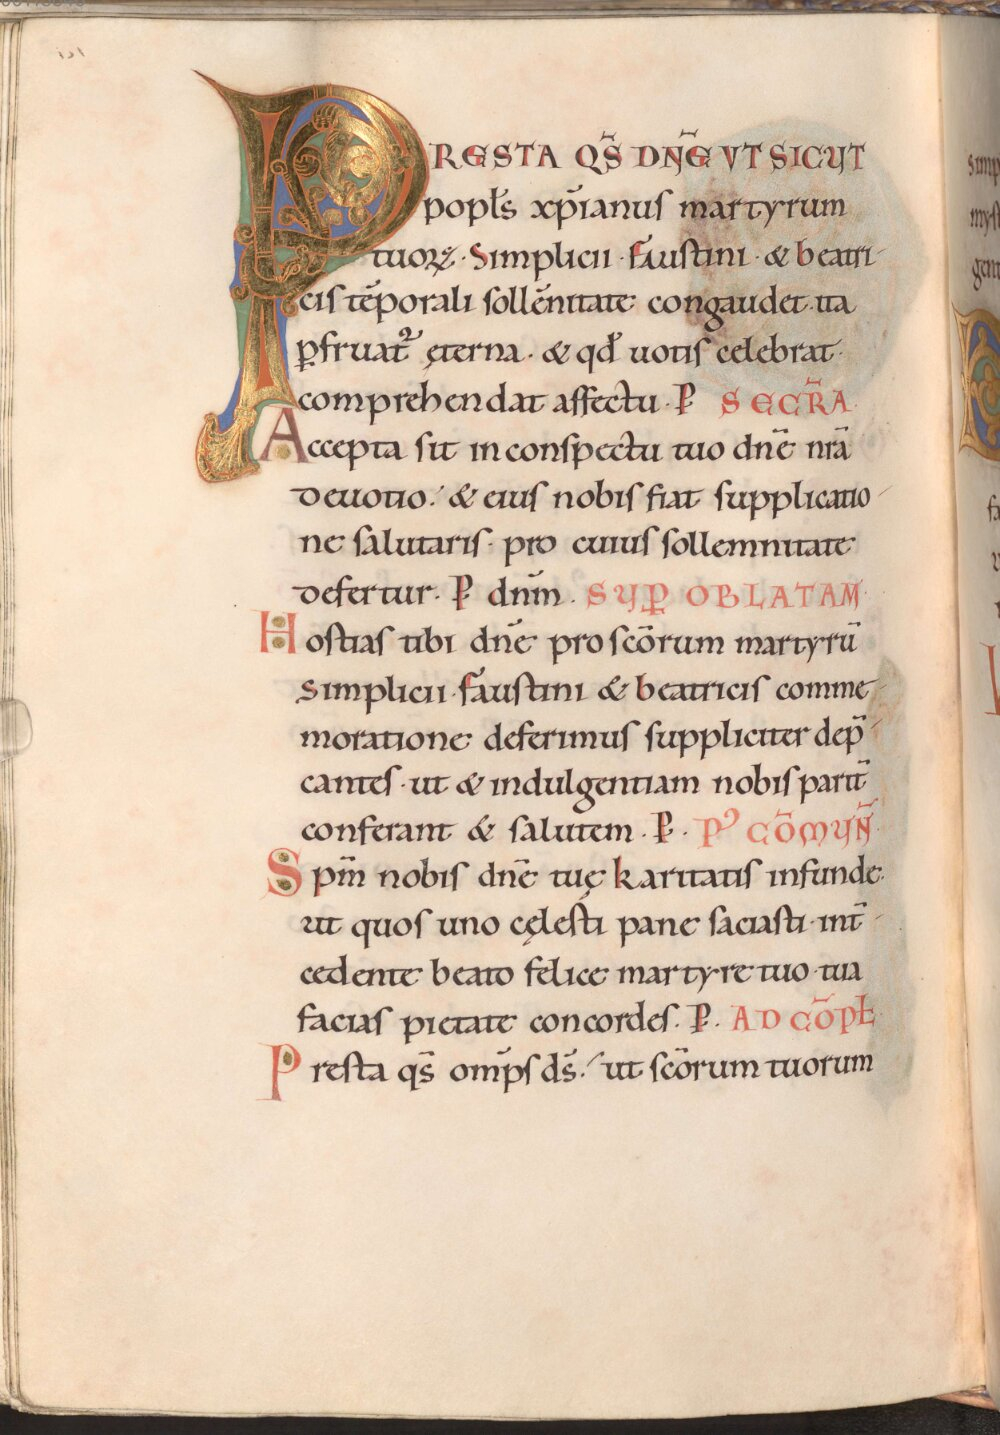 PRESTA QS̄ DN̄E VT SICUT
popłs xp̄ianus martyrum
tuoꝝ · Simplicii · Faustini · & beatri-
cis tēporali sollēnitate congaudet · ita
ꝑfruat᷑ ęterna · & qđ uotis celebrat ·
comprehendat affectu · ꝑ SECR̄A
Accepta sit in conspectu tuo dn̄e nr̄a
deuotio · & eius nobis fiat supplicatio-
ne salutaris · pro cuius sollemnitate
defertur · ꝑ dnm̄ · SUꝑ OBLATAM
Hostias tibi dn̄e pro sc̄orum martyrū
simplicii · faustini & beatricis comme-
moratione deferimus suppliciter dep̄-
cantes · ut & indulgentiam nobis parit̄
conferant & salutem · ꝑ · Pꝰ CŌMUN̄
Spm̄ nobis dn̄e tuę karitatis infunde ·
ut quos uno cęlesti pane saciasti · int̄-
cedente beato felice martyre tuo · tua
facias pietate concordes · ꝑ · AD CŌPŁ
Presta qs̄ omp̄s ds̄ · ut sc̄orum tuorum